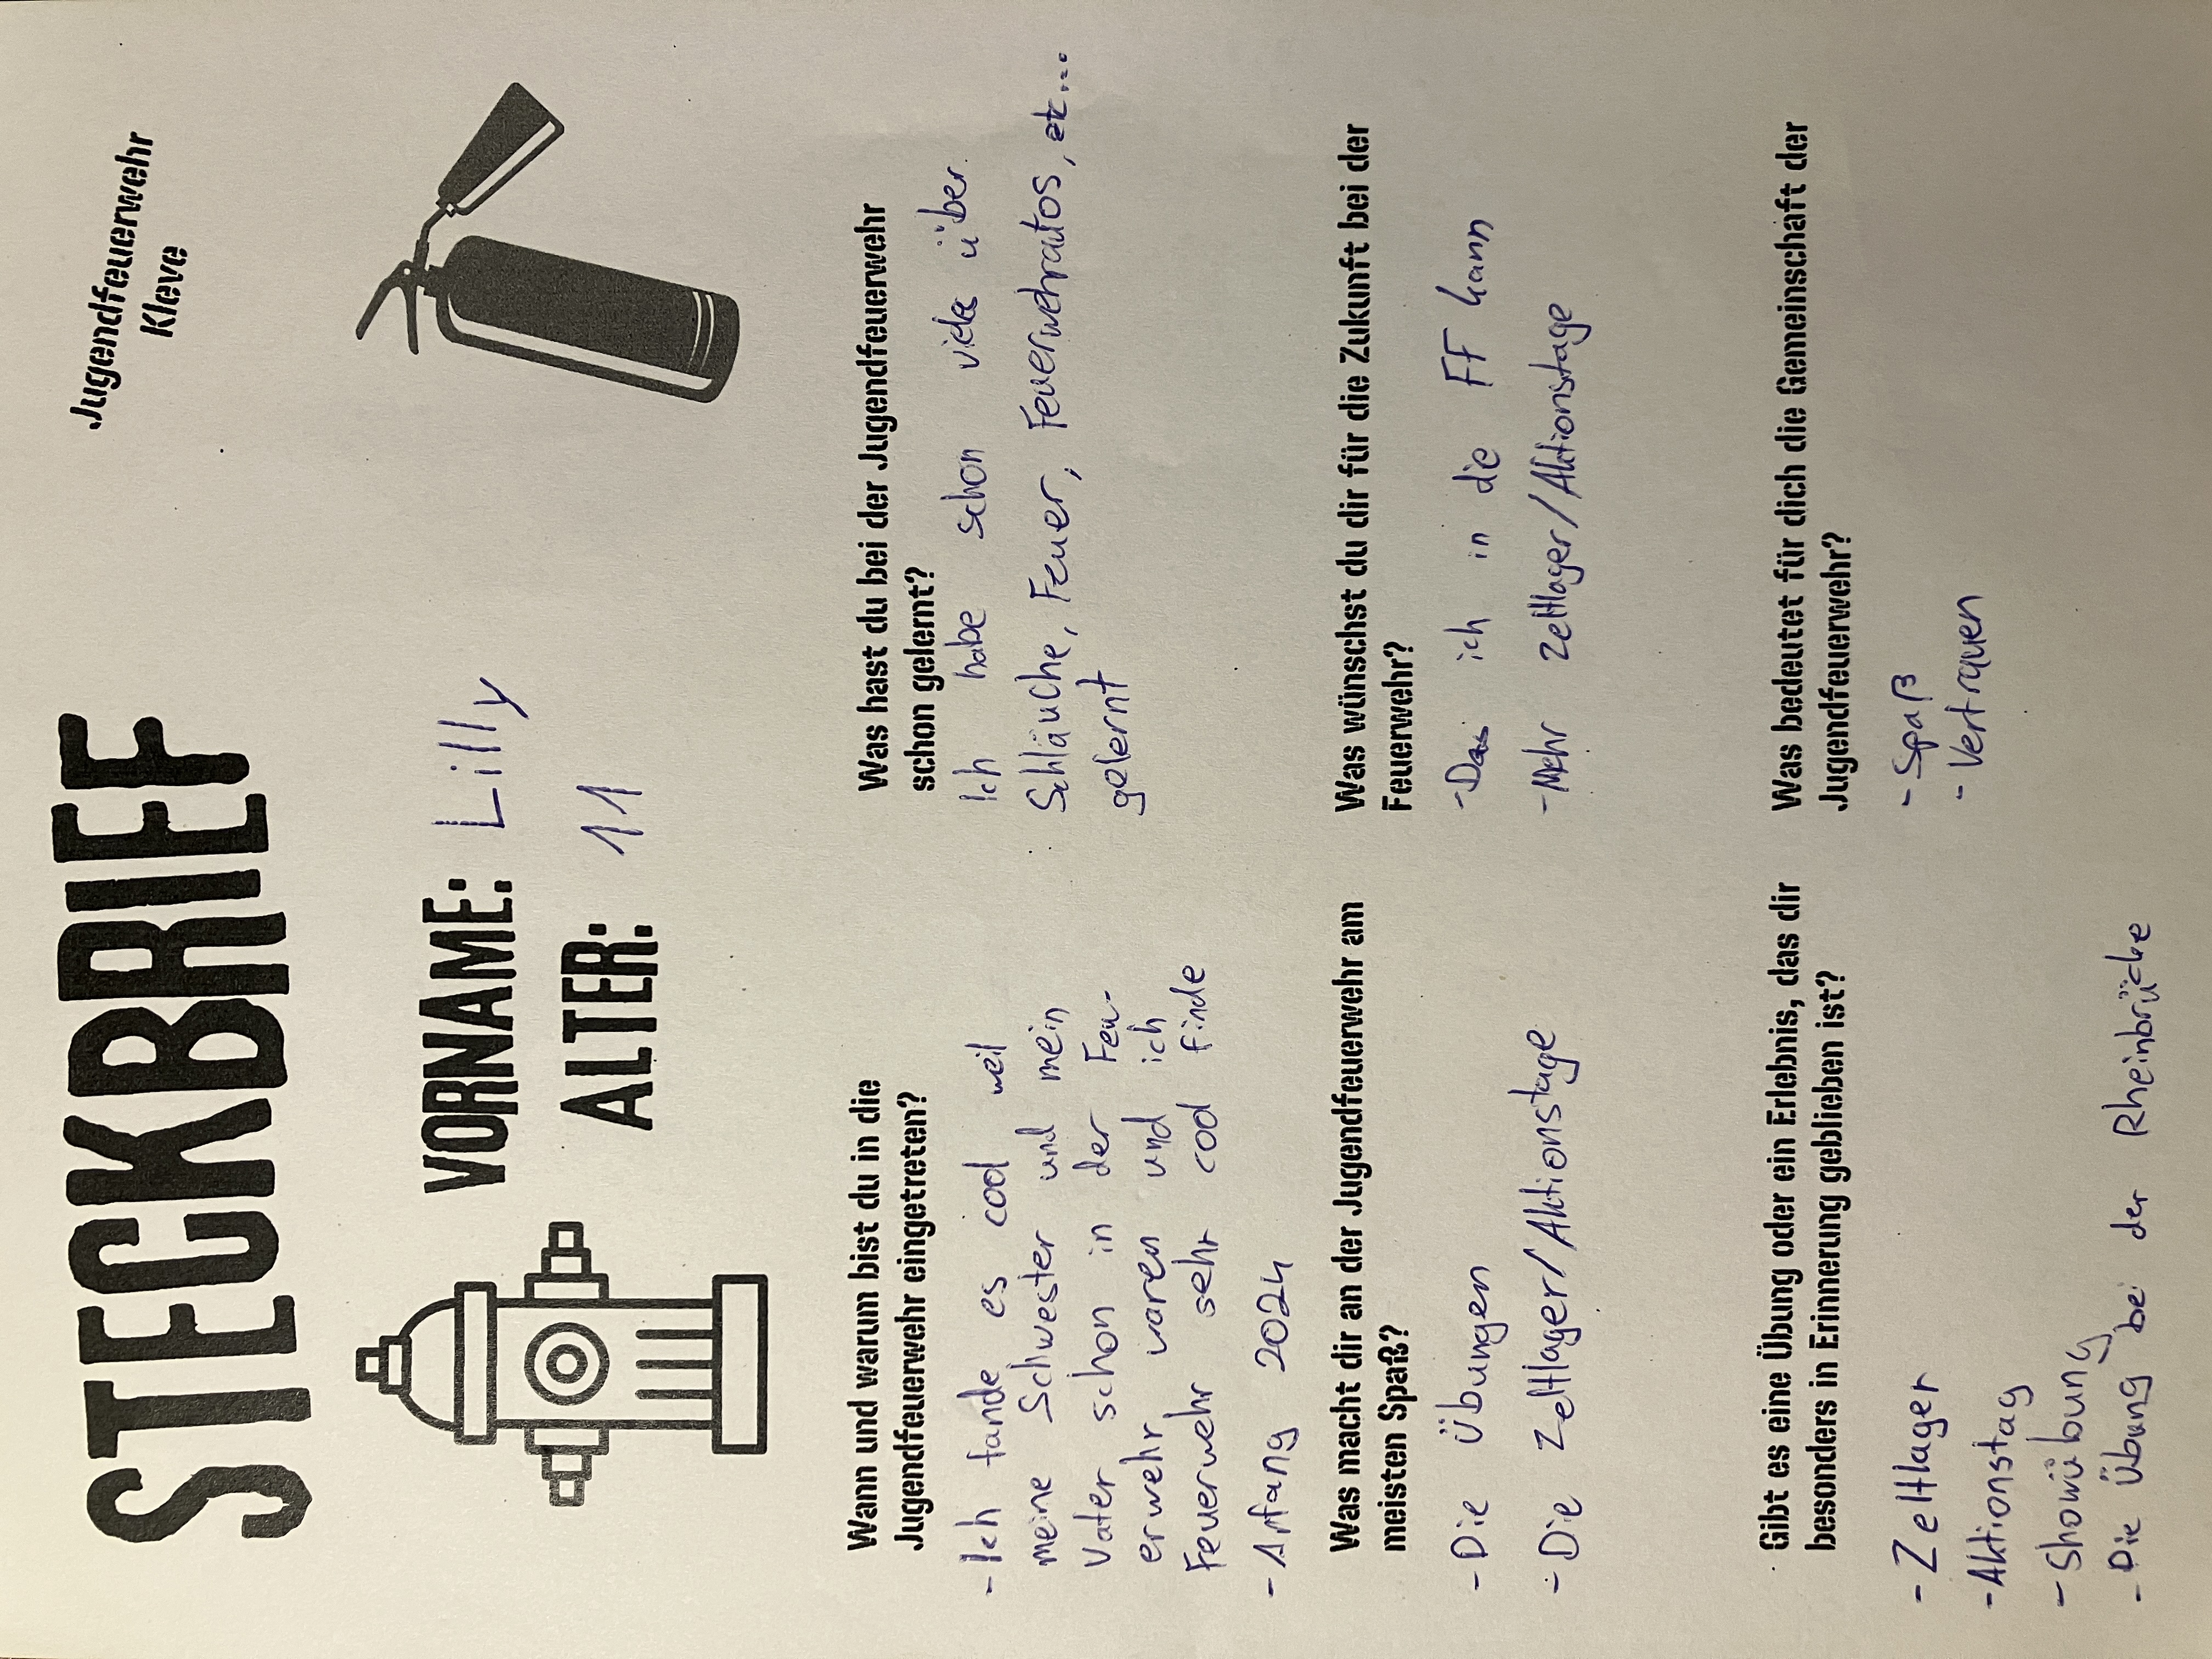 Jugendfeuerwehr
Kleve
STECKBRIEF
VORNAME: Lilly
ALTER: 11
Wann und warum bist du in die
Jugendfeuerwehr eingetreten?
- Ich fande es cool weil
meine Schwester und mein
Vater schon in der Feu-
erwehr waren und ich
Feuerwehr sehr cool finde
- Anfang 2024
Was hast du bei der Jugendfeuerwehr
schon gelernt?
Ich habe schon viels über
Schläuche, Feuer, Feuerwehrautos, etc...
gelernt
Was macht dir an der Jugendfeuerwehr am
meisten Spaß?
- Die Übungen
- Die Zeltlager/Aktionstage
Was wünschst du dir für die Zukunft bei der
Feuerwehr?
- Das ich in die FF kann
- Mehr Zeltlager/Aktionstage
Gibt es eine Übung oder ein Erlebnis, das dir
besonders in Erinnerung geblieben ist?
- Zeltlager
- Aktionstag
- Showübung
- Die Übung bei der Rheinbrücke
Was bedeutet für dich die Gemeinschaft der
Jugendfeuerwehr?
- Spaß
- Vertrauen